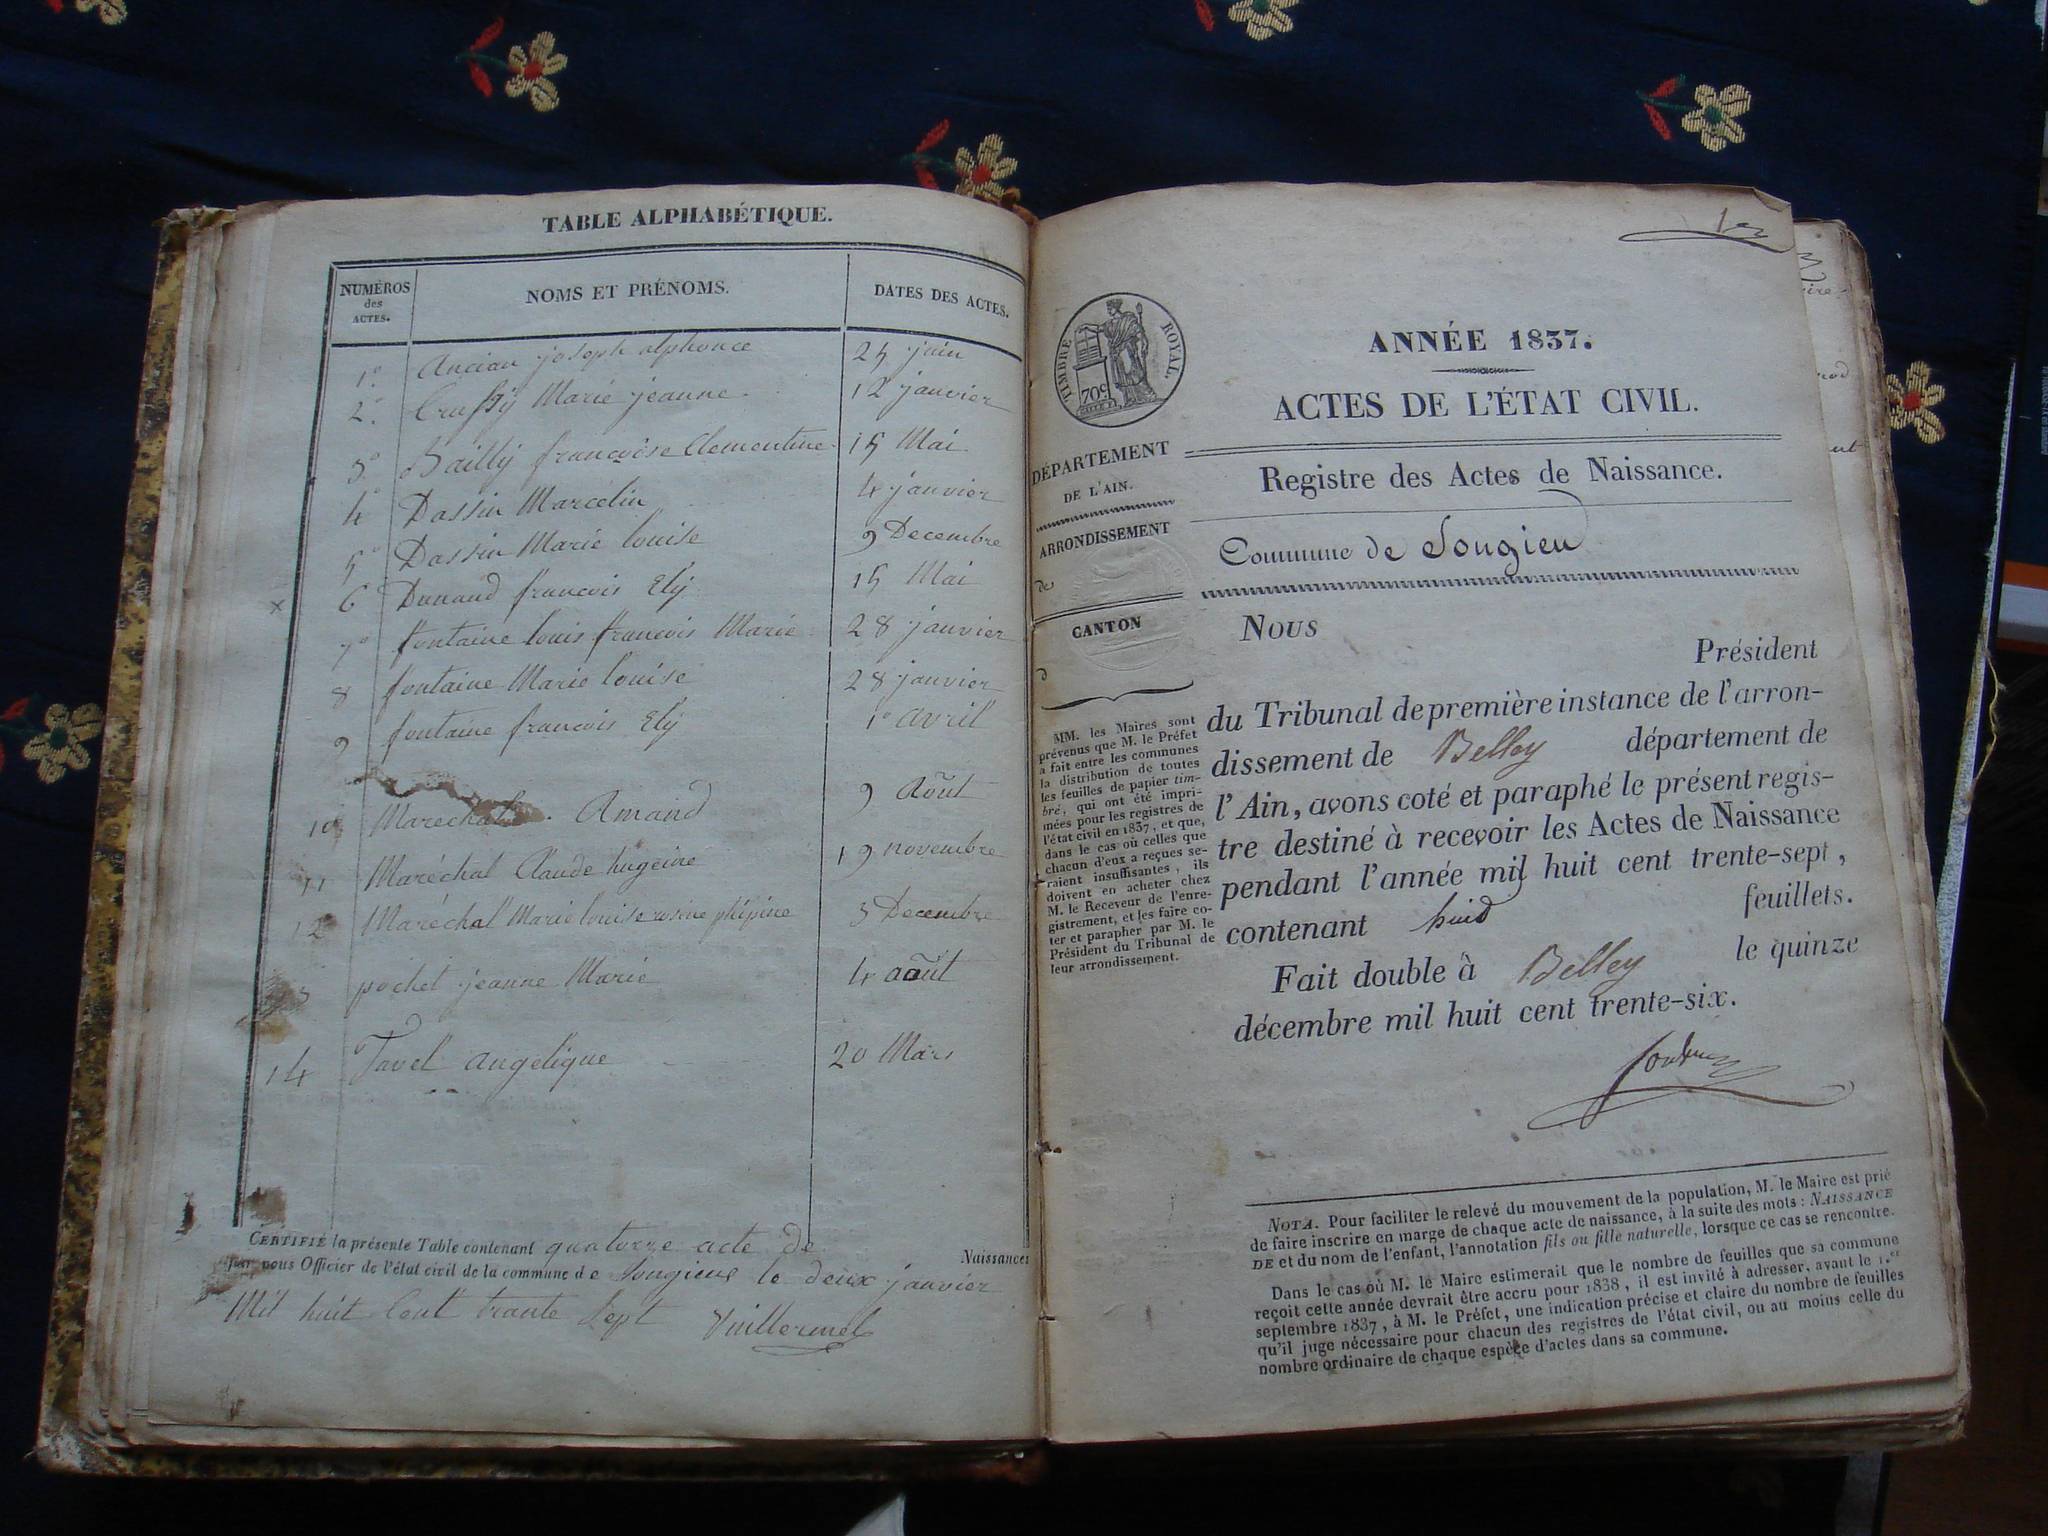 TABLE ALPHABÉTIQUE.
NUMÉROS
des
ACTES.
NOMS ET PRÉNOMS.
DATES DES ACTES.
1° Ancian joseph alphonce 25 juin
2° Marie jeanne 12 janvier
3° Bailly françoise Clementine 15 Mai
4° Dassin Marcelin 4 janvier
5° Dassin Marie louise 9 Decembre
6 Dunand francois Ely 15 Mai
7° fontaine louis francois Marie 28 janvier
8 fontaine Marie louise 28 janvier
9 fontaine francois Ely 1° avril
10 Marechal Amand 9 Août
11 Maréchal Claude hugeine 19 novembre
12 Maréchal Marie louise rosine 3 Decembre
3 pochet jeanne Marie 4 août
14 Tavel angelique 20 Mars
CERTIFIÉ la présente Table contenant quatorze acte de Naissances
par nous Officier de l'état civil de la commune de Songieu le deux janvier
Mil huit Cent trante Sept Vuillermet
1er
TIMBRE ROYAL.
70c
ANNÉE 1837.
ACTES DE L'ÉTAT CIVIL.
DÉPARTEMENT
DE L'AIN.
ARRONDISSEMENT
de
CANTON
d
Registre des Actes de Naissance.
Commune de Songieu
Nous
Président
du Tribunal de première instance de l'arron-
dissement de Belley département de
l'Ain, avons coté et paraphé le présent regis-
tre destiné à recevoir les Actes de Naissance
pendant l'année mil huit cent trente-sept,
contenant huid feuillets.
Fait double à Belley le quinze
décembre mil huit cent trente-six.
MM. les Maires sont
prévenus que M. le Préfet
a fait entre les communes
la distribution de toutes
les feuilles de papier tim-
bré, qui ont été impri-
mées pour les registres de
l'état civil en 1837, et que,
dans le cas où celles que
chacun d'eux a reçues se-
raient insuffisantes, ils
doivent en acheter chez
M. le Receveur de l'enre-
gistrement, et les faire co-
ter et parapher par M. le
Président du Tribunal de
leur arrondissement.
NOTA. Pour faciliter le relevé du mouvement de la population, M. le Maire est prié
de faire inscrire en marge de chaque acte de naissance, à la suite des mots : NAISSANCE
DE et du nom de l'enfant, l'annotation fils ou fille naturelle, lorsque ce cas se rencontre.
Dans le cas où M. le Maire estimerait que le nombre de feuilles que sa commune
reçoit cette année devrait être accru pour 1838, il est invité à adresser, avant le 1.er
septembre 1837, à M. le Préfet, une indication précise et claire du nombre de feuilles
qu'il juge nécessaire pour chacun des registres de l'état civil, ou au moins celle du
nombre ordinaire de chaque espèce d'actes dans sa commune.